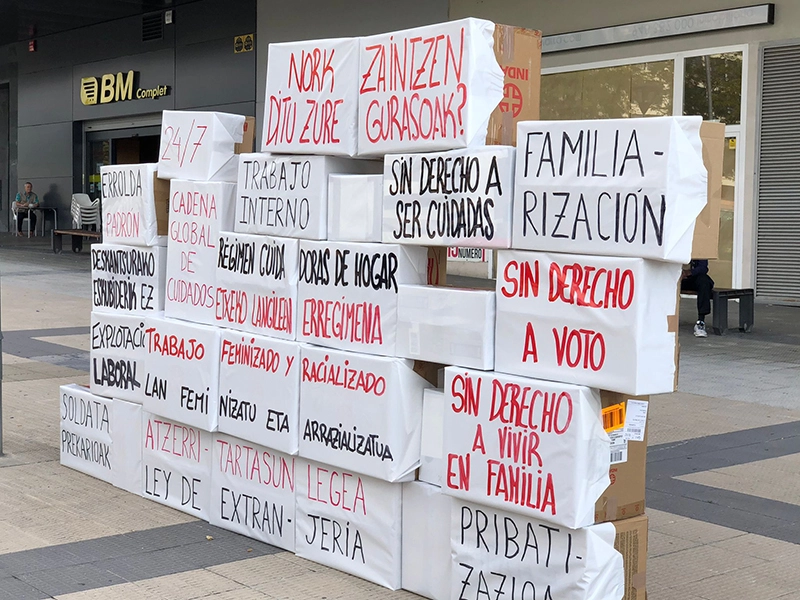 BM Complet
NORK ZAINTZEN
DITU ZURE GURASOAK?
24/7
ERROLDA
PADRÓN
CADENA
GLOBAL
DE
CUIDADOS
TRABAJO
INTERNO
SIN DERECHO A
SER CUIDADAS
FAMILIA-
RIZACIÓN
ESKUBIDERIK EZ
RÉGIMEN CUIDA DORAS DE HOGAR
ETXEKO LANGILEEN ERREGIMENA
SIN DERECHO
A VOTO
NUMERO
EXPLOTACI
LABORAL
TRABAJO FEMINIZADO Y RACIALIZADO
LAN FEMI NIZATU ETA ARRAZIALIZATUA
SIN DERECHO
A VIVIR
EN FAMILIA
SOLDATA
PREKARIOAK
ATZERRI- TARTASUN LEGEA
LEY DE EXTRAN- JERIA
PRIBATI-
ZAZIOA